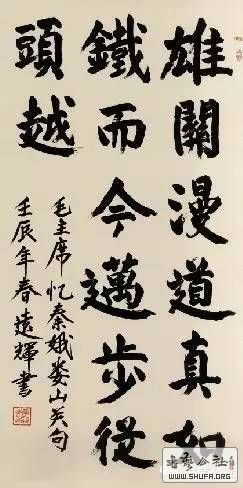 雄關漫道真如
鐵而今邁步從
頭越
毛主席忆秦娥娄山关句
壬辰年春遠輝書
WWW.SHUFA.ORG